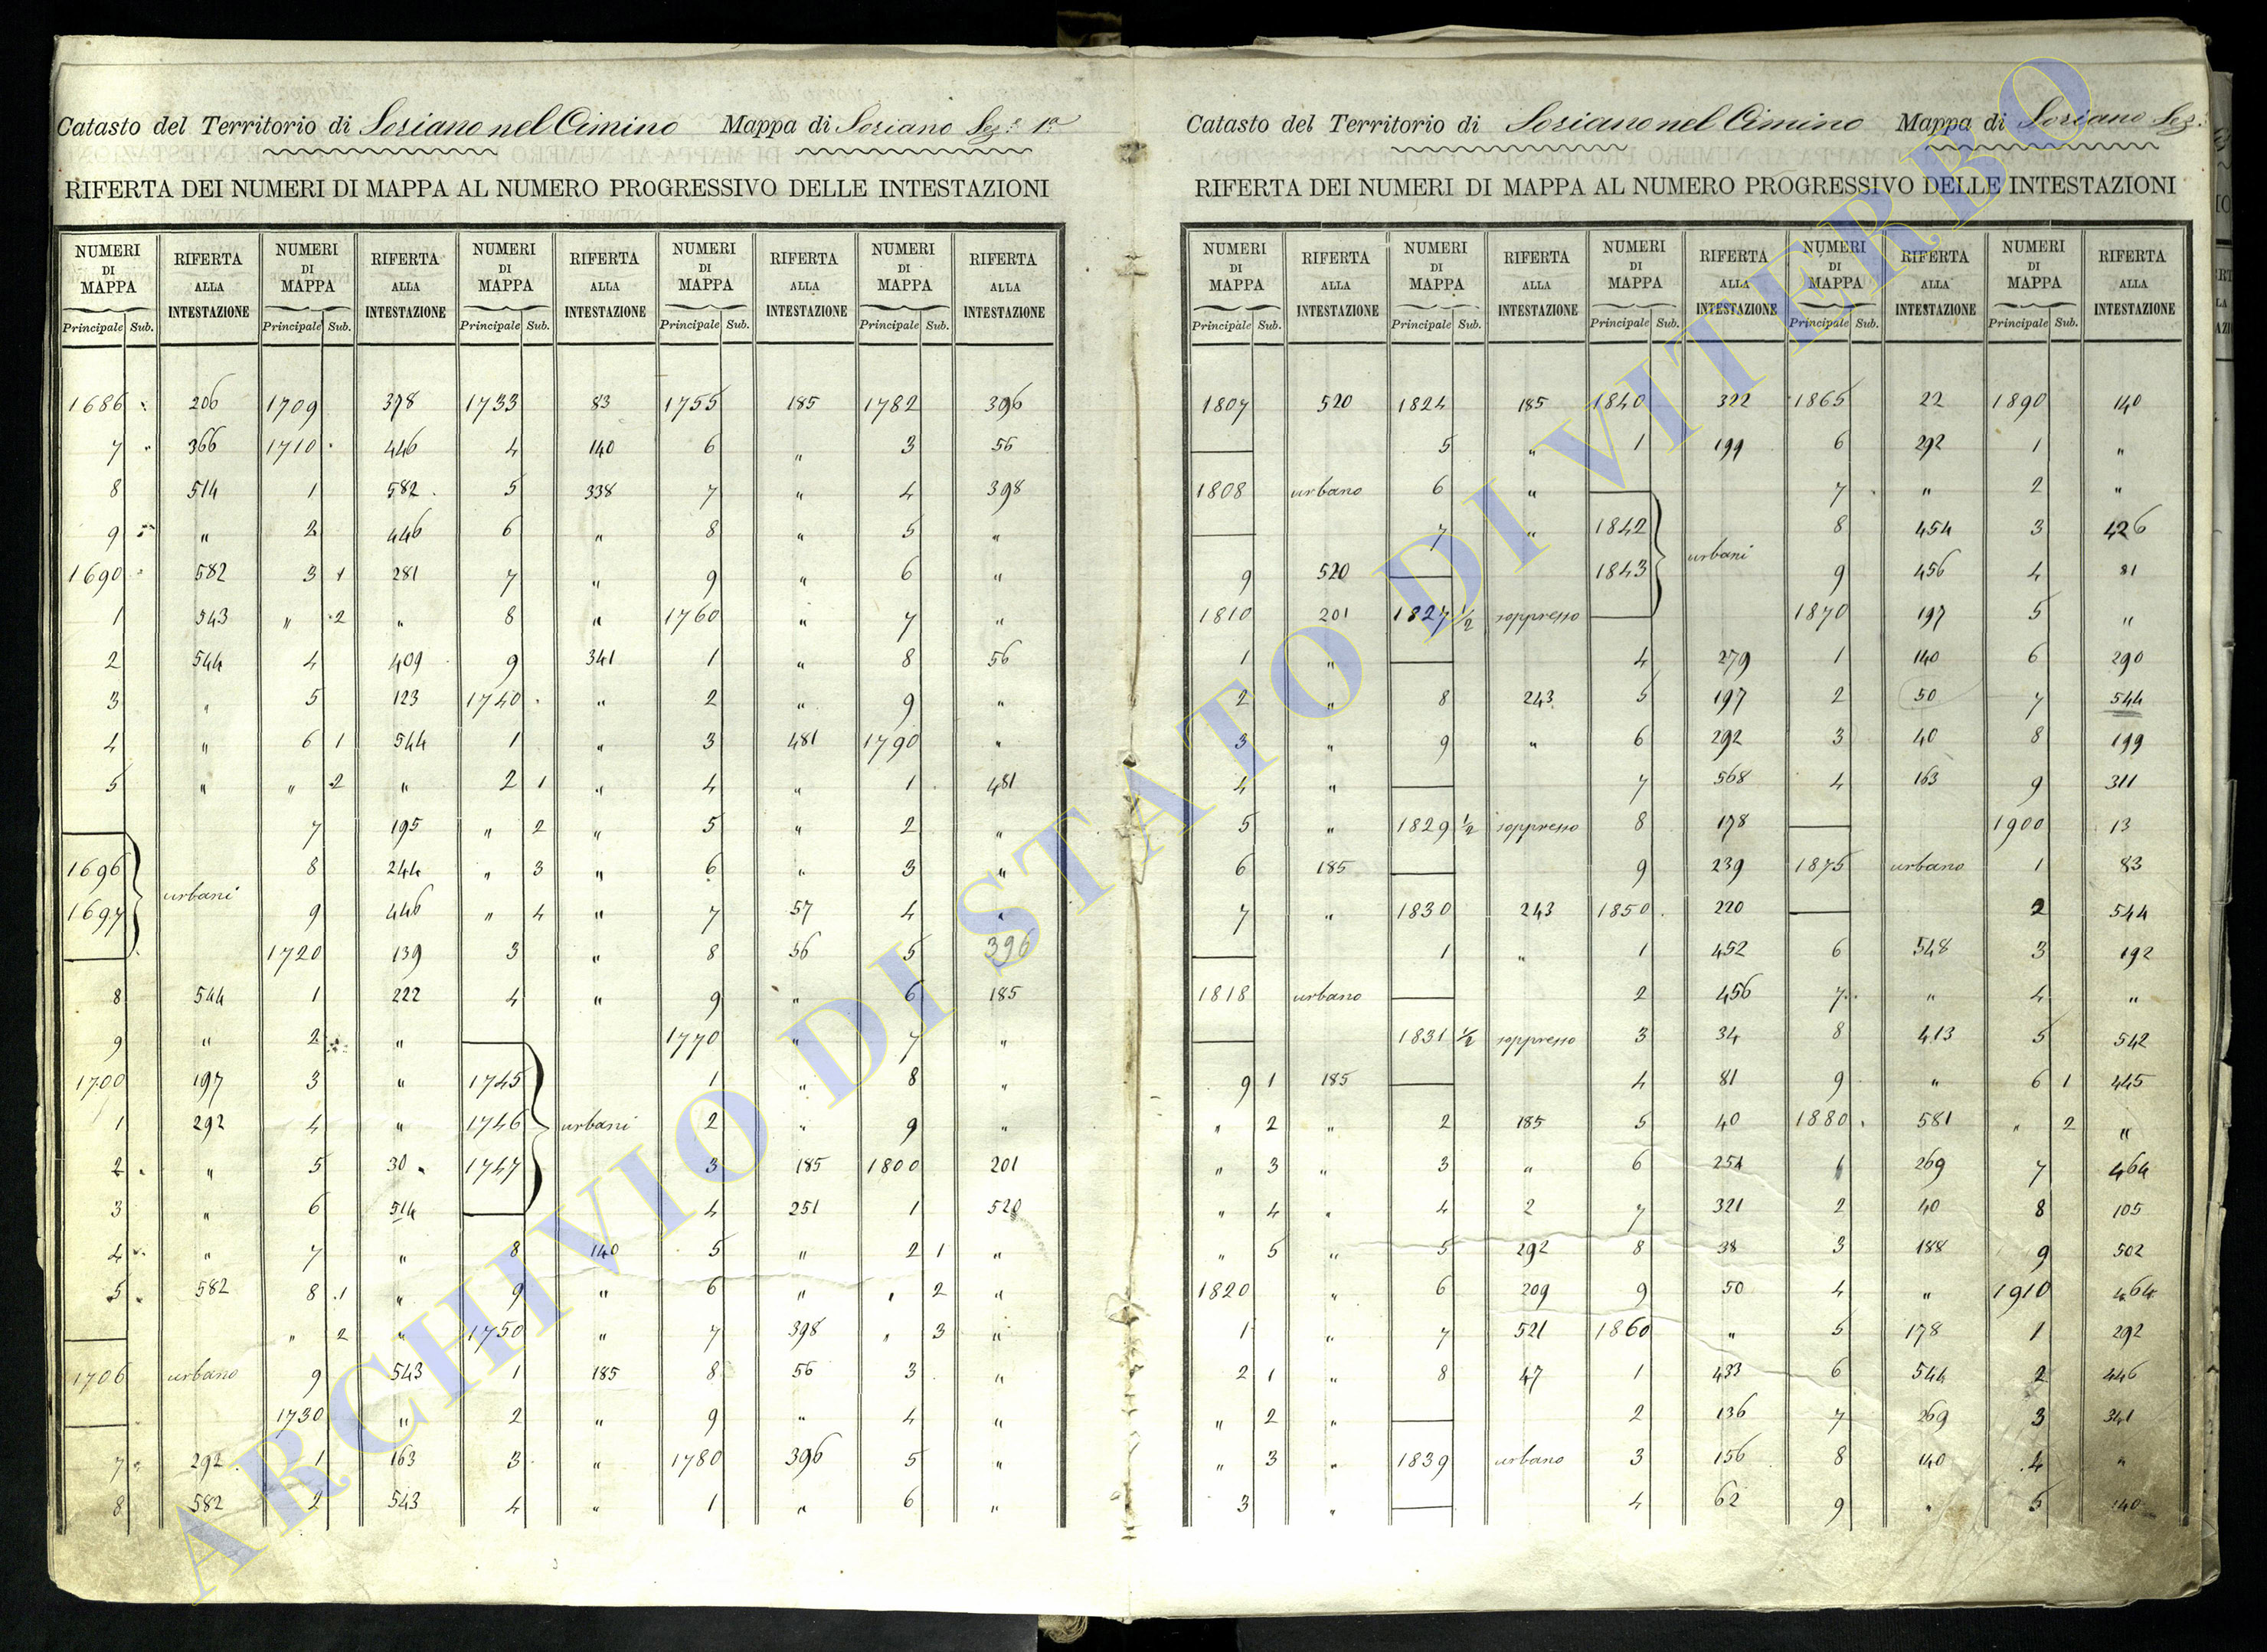 Catasto del Territorio di Soriano nel Cimino Mappa di Soriano Sez.e 1a
RIFERTA DEI NUMERI DI MAPPA AL NUMERO PROGRESSIVO DELLE INTESTAZIONI
NUMERI DI MAPPA RIFERTA ALLA INTESTAZIONE NUMERI DI MAPPA RIFERTA ALLA INTESTAZIONE NUMERI DI MAPPA RIFERTA ALLA INTESTAZIONE NUMERI DI MAPPA RIFERTA ALLA INTESTAZIONE NUMERI DI MAPPA RIFERTA ALLA INTESTAZIONE
Principale Sub. Principale Sub. Principale Sub. Principale Sub. Principale Sub.
1686 206 1709 378 1733 83 1755 185 1782 396
7 366 1710 446 4 140 6 " 3 56
8 514 1 582 5 338 7 " 4 398
9 " 2 446 6 " 8 " 5 "
1690 582 3 1 281 7 " 9 " 6 "
1 543 " 2 " 8 " 1760 " 7 "
2 544 4 409 9 341 1 " 8 56
3 " 5 123 1740 " 2 " 9 "
4 " 6 1 544 1 " 3 481 1790 "
5 " " 2 " 2 1 " 4 " 1 481
7 195 " 2 " 5 " 2 "
1696 urbani 8 244 " 3 " 6 " 3 "
1697 9 446 " 4 " 7 57 4 "
1720 139 3 " 8 56 5 396
8 544 1 222 4 " 9 " 6 185
9 " 2 " 1770 " 7 "
1700 197 3 " 1745 1 " 8 "
1 292 4 " 1746 urbani 2 " 9 "
2 " 5 30 1747 3 185 1800 201
3 " 6 514 4 251 1 520
4 " 7 " 8 140 5 " 2 1 "
5 582 8 1 " 9 " 6 " " 2 "
" 2 " 1750 " 7 398 " 3 "
1706 urbano 9 543 1 185 8 56 3 "
1730 " 2 " 9 " 4 "
7 292 1 163 3 " 1780 396 5 "
8 582 2 543 4 " 1 " 6 "
Catasto del Territorio di Soriano nel Cimino Mappa di Soriano Sez.
RIFERTA DEI NUMERI DI MAPPA AL NUMERO PROGRESSIVO DELLE INTESTAZIONI
NUMERI DI MAPPA RIFERTA ALLA INTESTAZIONE NUMERI DI MAPPA RIFERTA ALLA INTESTAZIONE NUMERI DI MAPPA RIFERTA ALLA INTESTAZIONE NUMERI DI MAPPA RIFERTA ALLA INTESTAZIONE NUMERI DI MAPPA RIFERTA ALLA INTESTAZIONE
Principale Sub. Principale Sub. Principale Sub. Principale Sub. Principale Sub.
1807 520 1824 185 1840 322 1865 22 1890 140
5 " 1 199 6 292 1 "
1808 urbano 6 " 7 " 2 "
7 " 1842 urbani 8 454 3 426
9 520 1843 9 456 4 81
1810 201 1827 1/2 soppresso 1870 197 5 "
1 " 4 279 1 140 6 290
2 " 8 243 5 197 2 50 7 544
3 " 9 " 6 292 3 40 8 199
4 " 7 568 4 163 9 311
5 " 1829 1/2 soppresso 8 178 1900 13
6 185 9 239 1875 urbano 1 83
7 " 1830 243 1850 220 2 544
1 " 1 452 6 548 3 192
1818 urbano 2 456 7 " 4 "
1831 1/2 soppresso 3 34 8 413 5 542
9 1 185 4 81 9 " 6 1 445
" 2 " 2 185 5 40 1880 581 " 2 "
" 3 " 3 " 6 251 1 269 7 464
" 4 " 4 2 7 321 2 40 8 105
" 5 " 5 292 8 38 3 188 9 502
1820 " 6 209 9 50 4 " 1910 464
1 " 7 521 1860 " 5 178 1 292
2 1 " 8 47 1 433 6 544 2 446
" 2 " 2 136 7 269 3 341
" 3 " 1839 urbano 3 156 8 140 4 "
3 " 4 62 9 " 5 140
ARCHIVIO DI STATO DI VITERBO